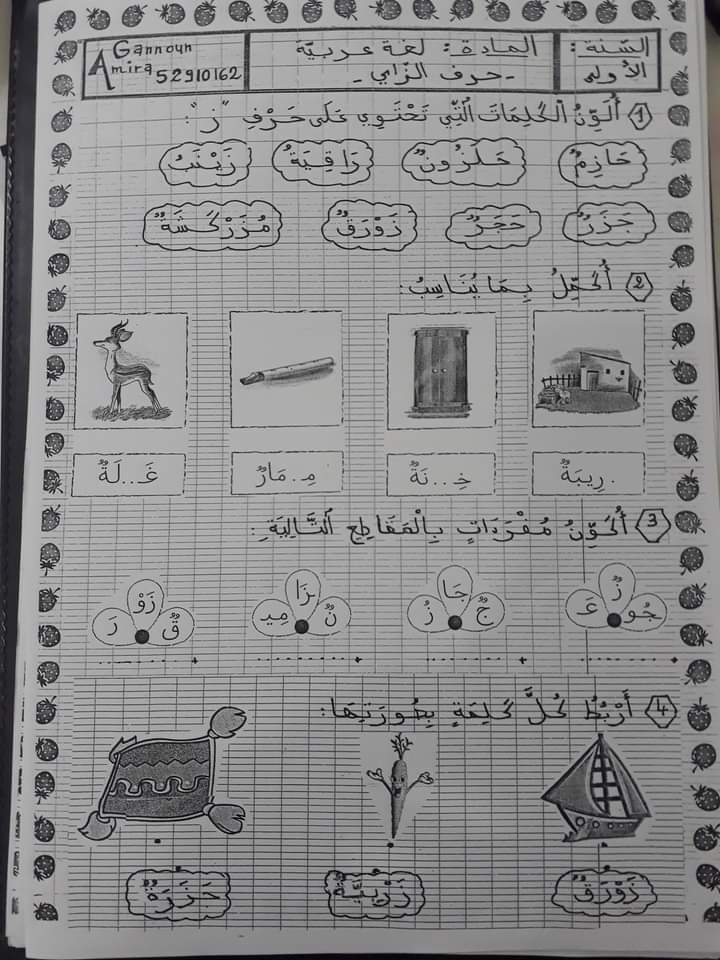 السّنة: المادة: لغة عربيّة Gannoun
الأولى - حرف الزّاي - Amira 52910162
1 أُلَوِّنُ الْكَلِمَاتِ الَّتِي تَحْتَوِي عَلَى حَرْفِ "ز":
حَازِمٌ حَلَزُونٌ رَاقِيَةٌ زَيْنَبُ
جَزَرٌ حَجَرٌ زَوْرَقٌ مُزَرْكَشَةٌ
2 أُكَمِّلُ بِمَا يُنَاسِبُ:
.رِيبَةٌ خِ...نَةٌ مِ..مَارٌ غَ...لَةٌ
3 أُكَوِّنُ مُفْرَدَاتٍ بِالْمَقَاطِعِ التَّالِيَةِ:
زٌ جَا زَا زَوْ
عَ جُو زُ جٌ مِيد نٌ رَ قٌ
4 أَرْبُطُ كُلَّ كَلِمَةٍ بِصُورَتِهَا:
زَوْرَقٌ زَرْبِيَّةٌ جَزَرَةٌ